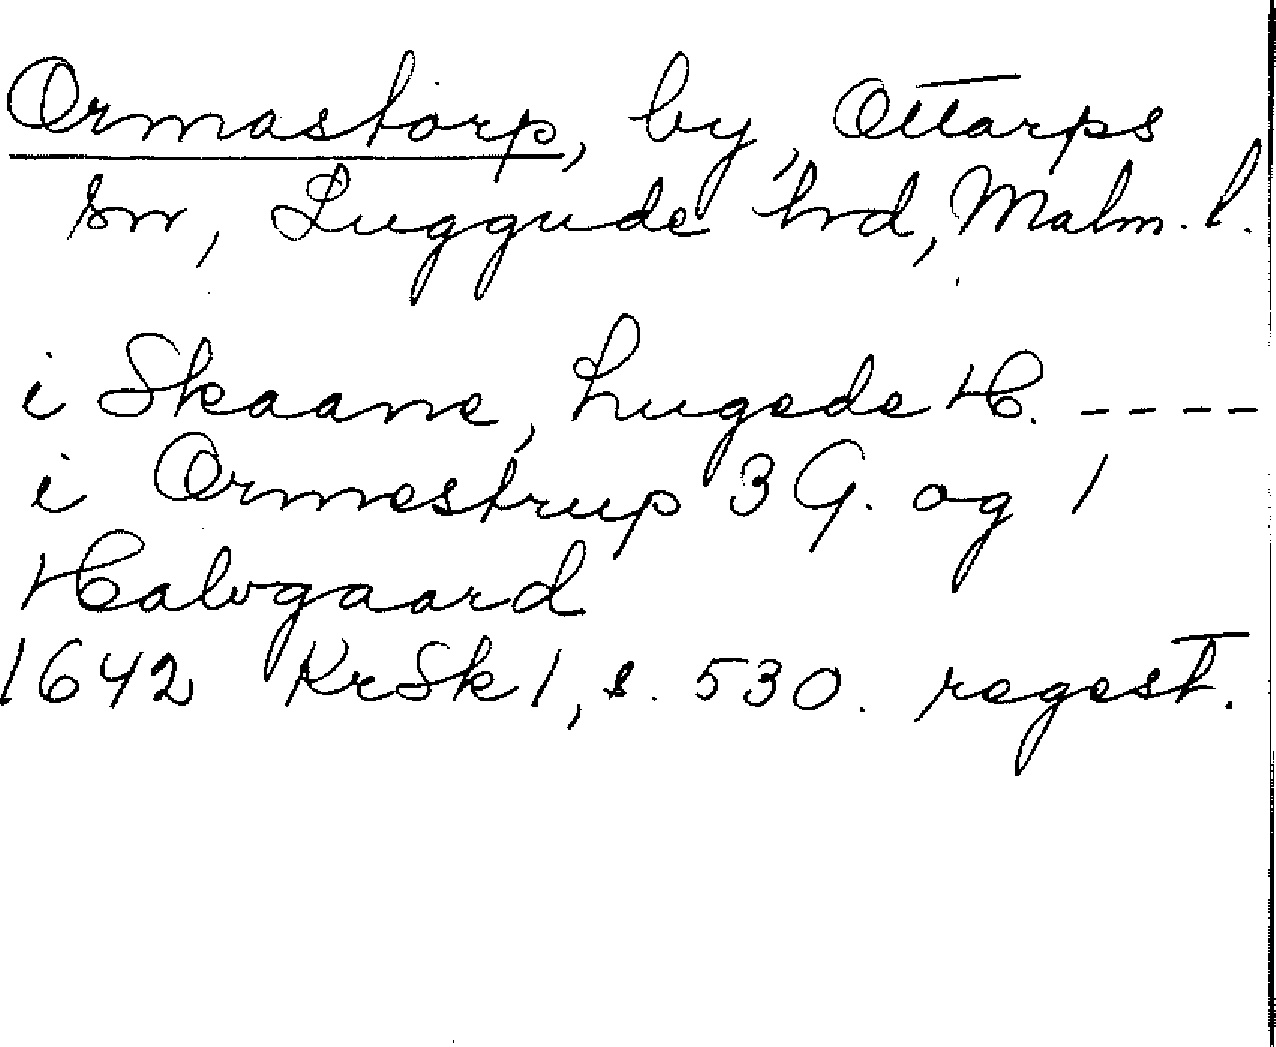 Ormastorp, by, Ottarps
sn, Luggude hrd, Malm. l.
i Skaane, Lugede H. ----
i Ormestrup 3 G. og 1
Halvgaard
1642 KrSk 1, s. 530. regest.